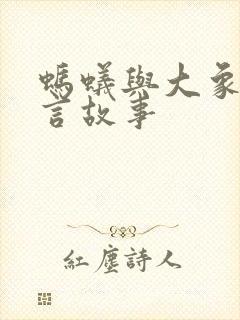 螞蟻與大象
言故事
紅塵詩人